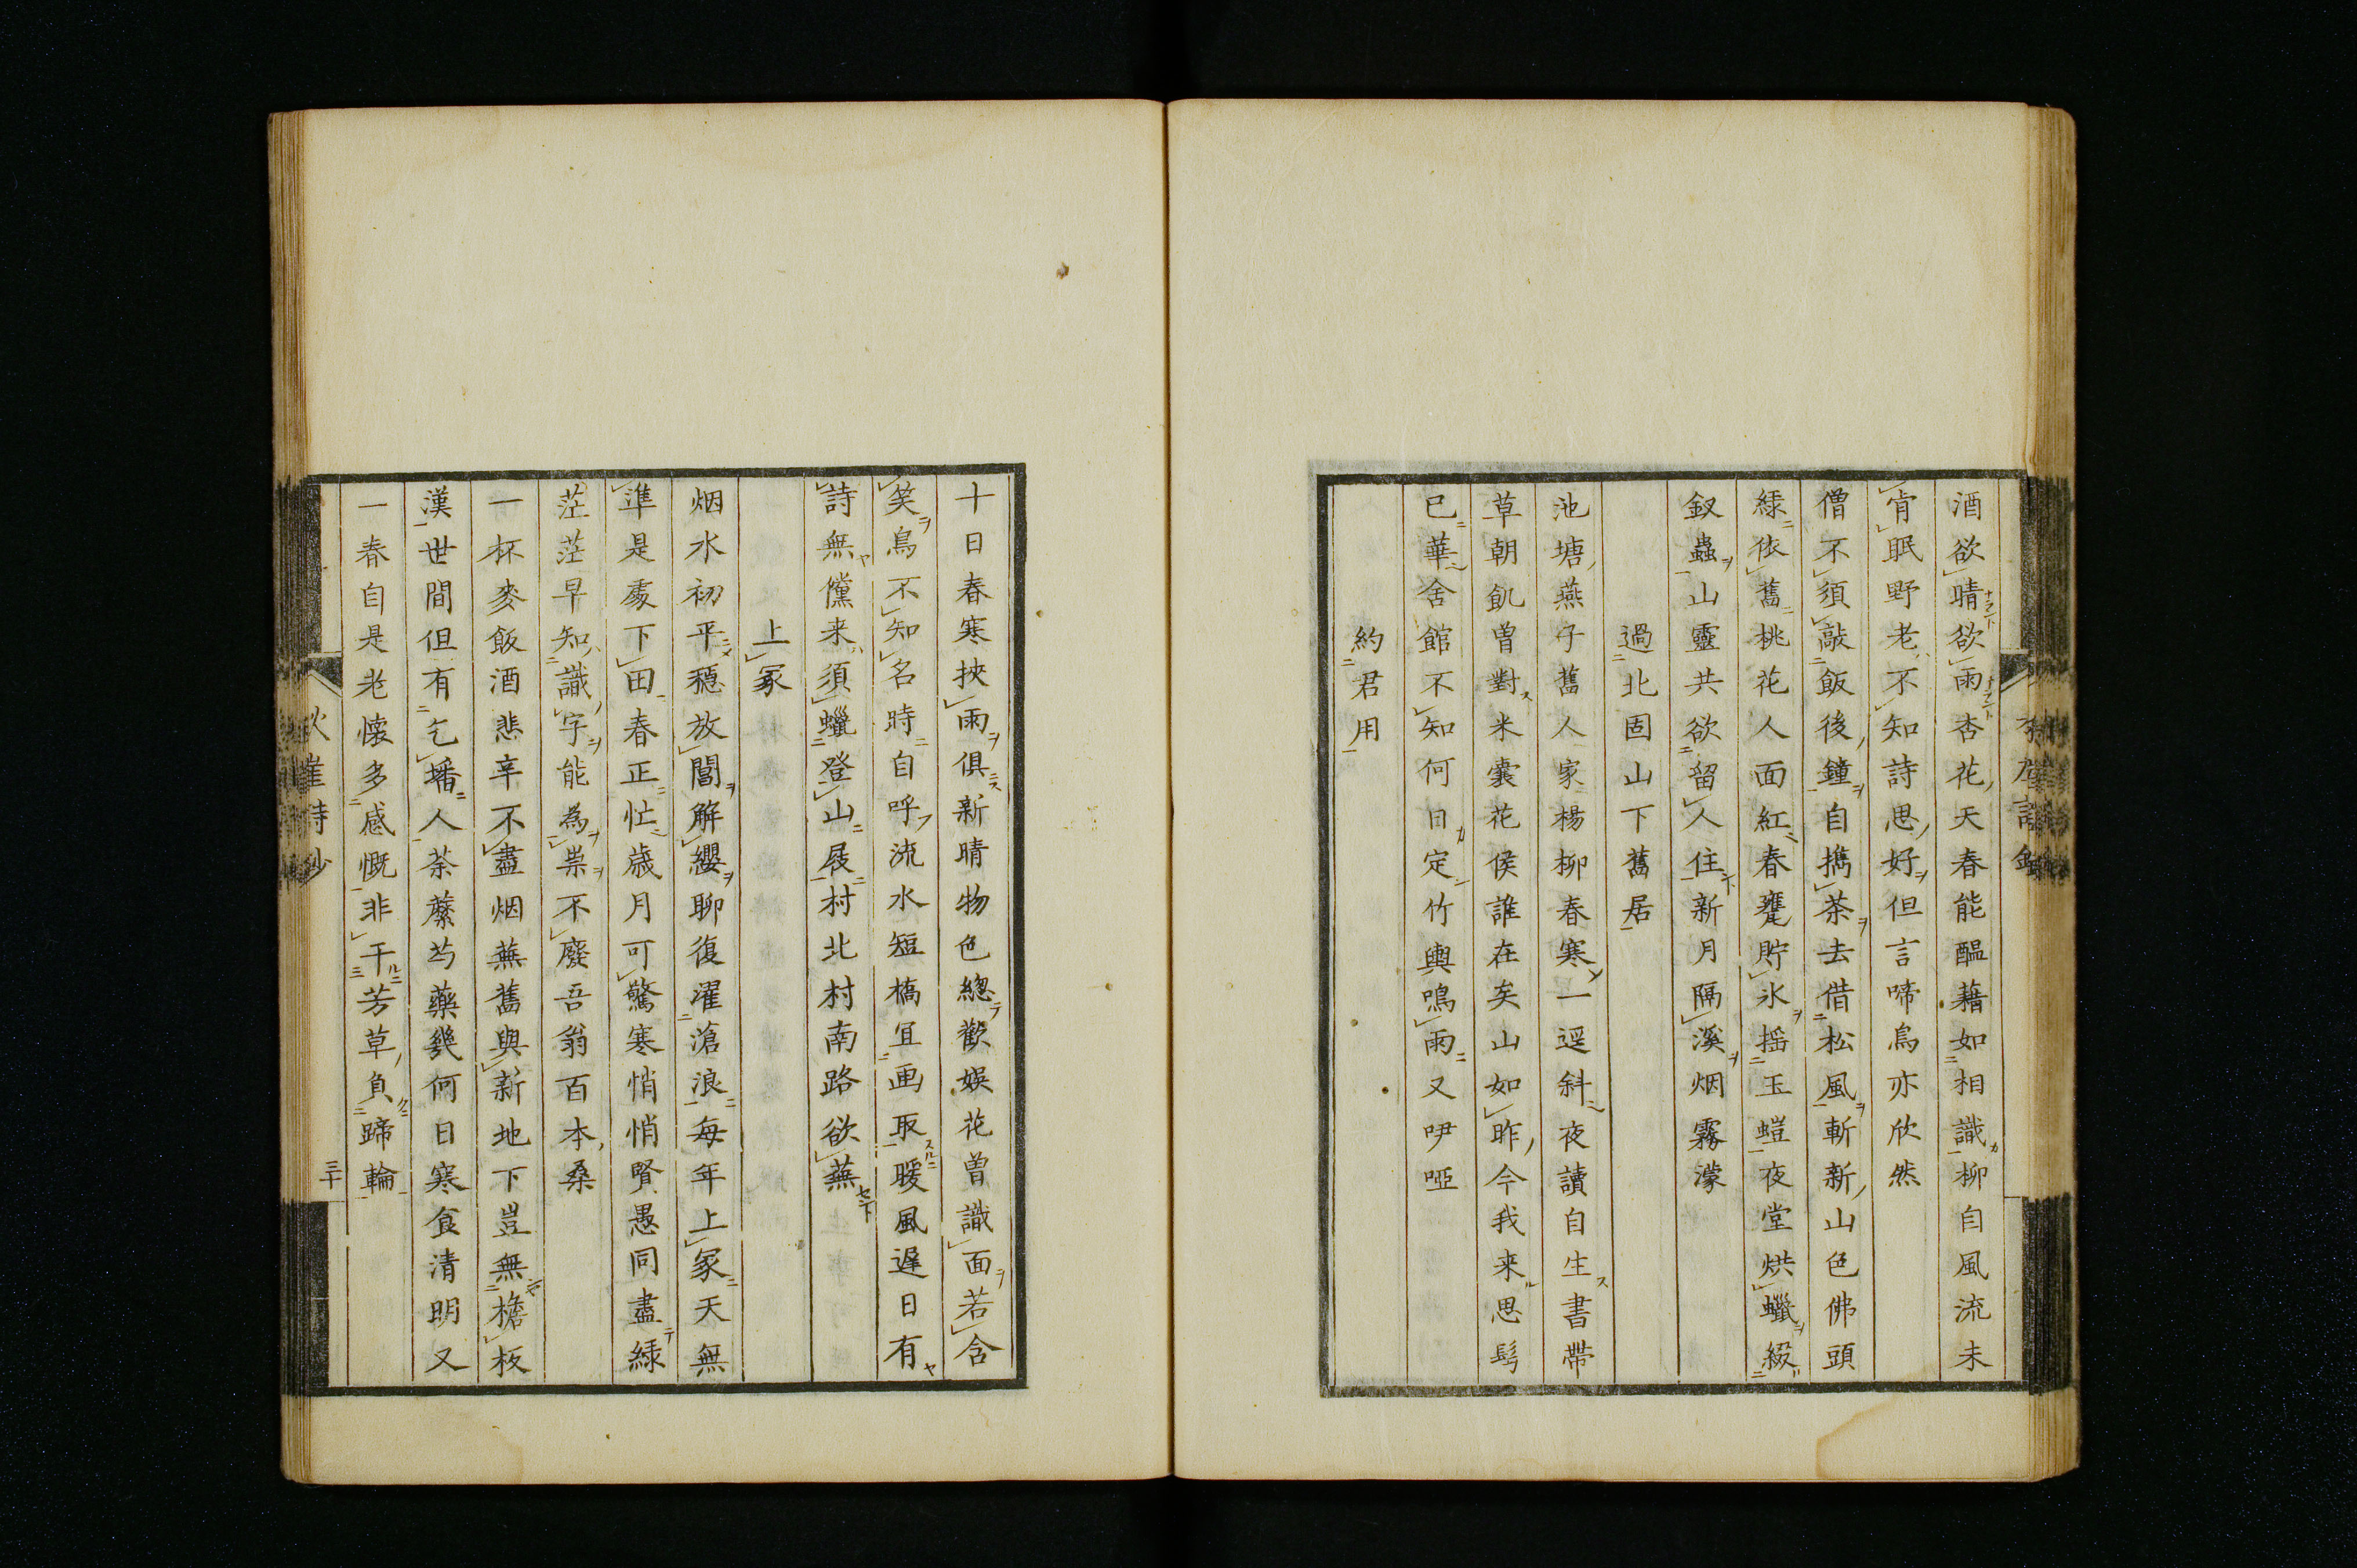 酒欲晴欲雨杏花天春能醞藉如相識柳自風流未
肯眠野老不知詩思好但言啼鳥亦欣然
僧不須敲飯後鐘自擕茶去借松風斬新山色佛頭
緑依舊桃花人面紅春甕貯氷揺玉螘夜堂烘蠟綴
釵蟲山靈共欲留人住新月隔溪烟霧濛
過北固山下舊居
池塘燕子舊人家楊柳春寒一逕斜夜讀自生書帶
草朝飢曽對米囊花侯誰在矣山如昨今我来思髩
已華舍館不知何日定竹輿鳴雨又咿啞
約君用
十日春寒挾雨俱新晴物色總歡娯花曽識面若含
笑鳥不知名時自呼流水短橋冝画取暖風遅日有
詩無儻来須蠟登山屐村北村南路欲蕪
上冢
烟水初平穏放閤解纓聊復濯滄浪毎年上冢天無
準是處下田春正忙歳月可驚寒悄悄賢愚同盡緑
茫茫早知識字能為祟不廢吾翁百本桑
一杯麥飯酒悲辛不盡烟蕪舊與新地下豈無檐板
漢世間但有乞墦人荼蘼芍藥幾何日寒食清明又
一春自是老懐多感慨非干芳草負蹄輪
秋崖詩鈔
三十